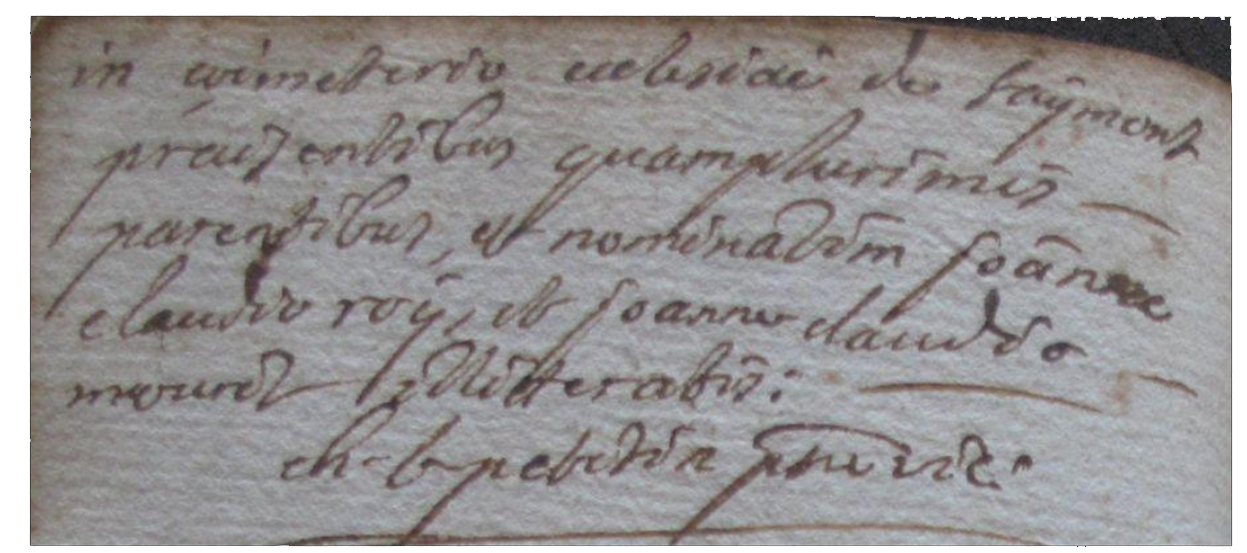 in coimeterio ecclesiae de faymont
praesentibus quamplurimis
parentibus, et nominatim joanne
claudio roy, et joanne claudio
illitteratis:
petitin